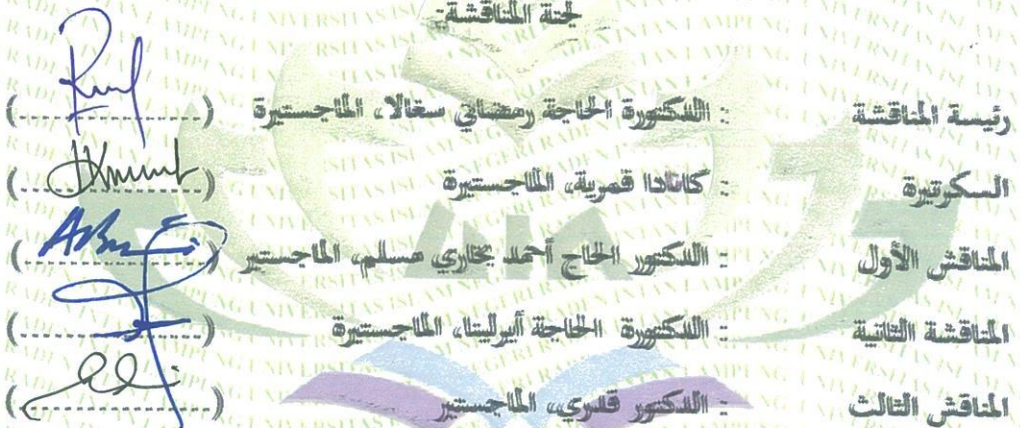 لجنة المناقشة:
رئيسة المناقشة : الدكتورة الحاجة رمضاني سغالا، الماجستيرة (..................)
السكرتيرة : كانادا قمرية، الماجستيرة (..................)
المناقش الأول : الدكتور الحاج أحمد بخاري مسلم، الماجستير (..................)
المناقشة الثانية : الدكتورة الحاجة أبرليتا، الماجستيرة (..................)
المناقش الثالث : الدكتور قدري، الماجستير (..................)